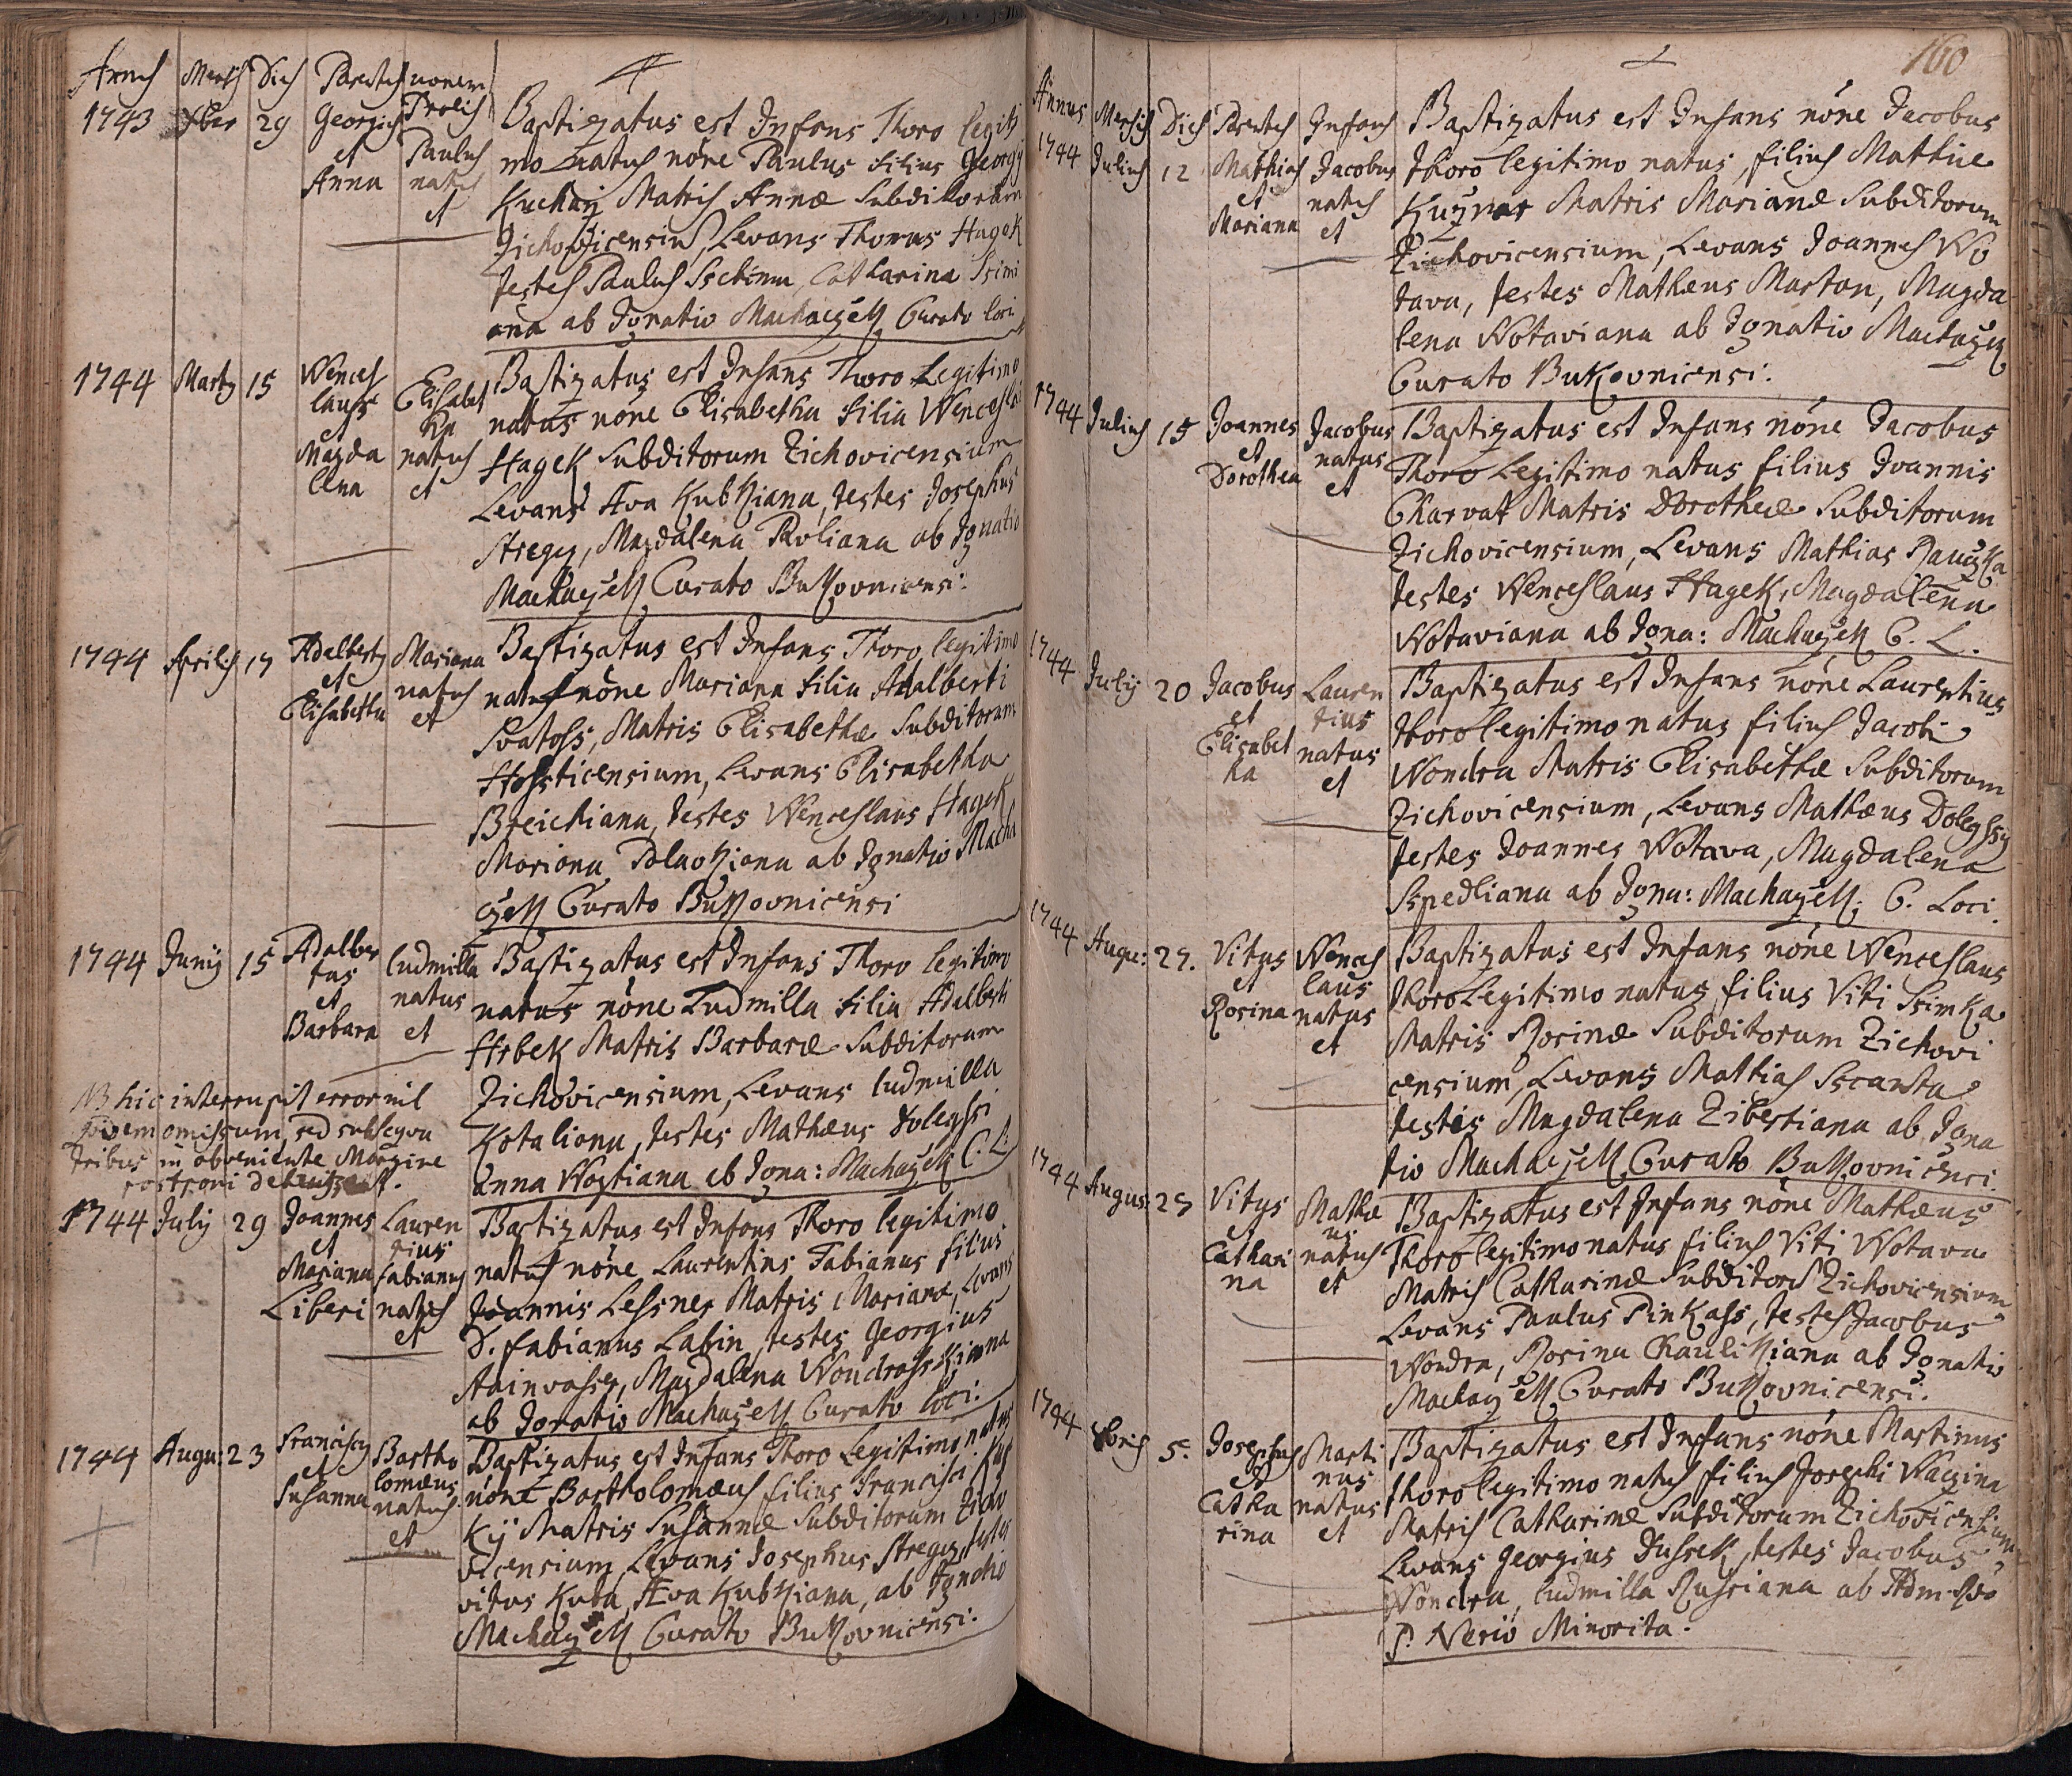 Annus Mensis Dies Parentes nomen
Prolis
1743 Xber 29 Georgius
et
Anna
Paulus
natus
et
Baptizatus est Infans Thoro legiti
mo natus nóne Paulus filius Georgÿ
Matris Annæ Subditorum
Zichovicensiu, Levans Thomas Hagek
testes Paulus Catharina
ana ab Ignatio Machaczek Curato loci
1744 Marty 15 Wences
laus
et
Magda
lena
Elisabet
ha
natus
et
Baptizatus est Infans Thoro Legitimo
natus nóne Elisabetha filia Wenceslai
Hagek Subditorum Zichovicensium
Levans Ava Kubkiana, testes Josephus
Stregcz, Magdalena Pavliana ab Ignatio
Machaczek Curato Bukovnicensi:
1744 Aprilis 17 Adalberty
et
Elisabetha
Mariana
natus
et
Baptizatus est Infans Thoro legitimo
natus nóne Mariana filia Adalberti
Svatoss, Matris Elisabethæ Subditorum
Hossticensium, Levans Elisabetha
Breichiana, testes Wenceslaus Hagek
Mariana Polackiana ab Ignatio Macha
czek Curato Bukovnicensi
1744 Junÿ 15 Adalber
tus
et
Barbara
ludmilla
natus
et
Baptizatus est Infans Thoro legitimo
natus nóne Ludmilla filia Adalberti
Hrbek Matris Barbaræ Subditorum
Zichovicensium, Levans ludmilla
Kotaliana, testes Mathæus Dolegssi
Anna Wogtiana ab Igna: Machaczek C. L:
NB hic interrupit error nil
quidem omissum, sed subsequa
tribus in obveniente Margine
1744 July 29 Joannes
et
Mariana
Liberi
Lauren
tius
fabianus
natus
et
Baptizatus est Infans Thoro legitimo
natus nóne Laurentius Fabianus filius
Joannis Lessner Matris Marianæ, Levans
D. fabianus Labin, testes Georgius
Magdalena Wondrasskiana
ab Ignatio Machaczek Curato loci:
1744 Augu: 23 Franciscy
et
Susanna
Bartho
lomæus
natus
et
Baptizatus est Infans Thoro Legitimo natus
nóne Bartholomæus filius Francisci
Kÿ Matris Susannæ Subditorum Zicho
vicensium, Levans Josephus Stregcz, testes
vitus Kuba, Æva Kubkiana, ab Ignatio
Machaczek Curato Bukovnicensi:
160
Annus Mensis Dies Parentes Infans
1744 Julius 12 Mathias
et
Mariana
Jacobus
natus
et
Baptizatus est Infans nóne Jacobus
thoro legitimo natus, filius Mathiæ
Matris Marianæ Subditorum
Zichovicensium, Levans Joannes Wo
tava, testes Mathæus Marton, Magda
lena Wotaviana ab Ignatio Machaczek
Curato Bukovnicensi:
1744 Julius 15 Joannes
et
Dorothea
Jacobus
natus
et
Baptizatus est Infans nóne Jacobus
Thoro Legitimo natus filius Joannis
Charvat Matris Dorotheæ Subditorum
Zichovicensium, Levans Mathias Rauczka
testes Wenceslaus Hagek, Magdalena
Wotaviana ab Igna: Machaczek C. L.
1744 July 20 Jacobus
et
Elisabet
ha
Lauren
tius
natus
et
Baptizatus est Infans nóne Laurentius
thoro legitimo natus filius Jacobi
Wondra Matris Elisabethæ Subditorum
Zichovicensium, Levans Mathæus Dolegssy
testes Joannes Wotava, Magdalena
Sspedliana ab Igna: Machaczek, C. Loci.
1744 Augu: 27. Vitus
et
Rosina
Wences
laus
natus
et
Baptizatus est Infans nóne Wenceslaus
thoro Legitimo natus filius Viti Ssimka
Matris Rosinæ Subditorum Zichovi
censium, Levans Mathias Sscasta
testes Magdalena Zibertiana ab Igna
tio Machaczek Curato Bukovnicensi.
1744 Augus: 27 Vitus
et
Cathari
na
Mathæ
us
natus
et
Baptizatus est Infans nóne Mathæus
Thoro legitimo natus filius Viti Wotava
Matris Catharinæ Subditoru Zichovicensium
Levans Paulus Pinkass, testes Jacobus
Wondra, Rosina Chaulikiana ab Ignatio
Machaczek Curato Bukovnicensi.
1744 Xbris 5. Josephus
et
Catha
rina
Marti
nus
natus
et
Baptizatus est Infans nóne Martinus
thoro legitimo natus filius Josephi Waczina
Matris Catharinæ Subditorum Zichovicensium
Levans Georgius Dussek, testes Jacobus
Wondra, ludmilla Russiana ab Adm. Rdo
P. Nerio Minorita.